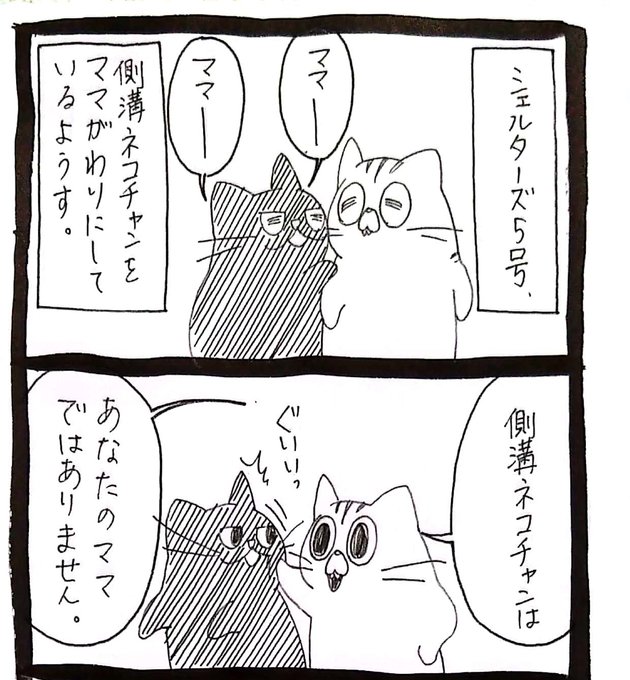 シェルターズ5号、
ママー
ママー
側溝ネコチャンを
ママがわりにして
いるようす。
側溝ネコチャンは
ぐいいっ
あなたのママ
ではありません。